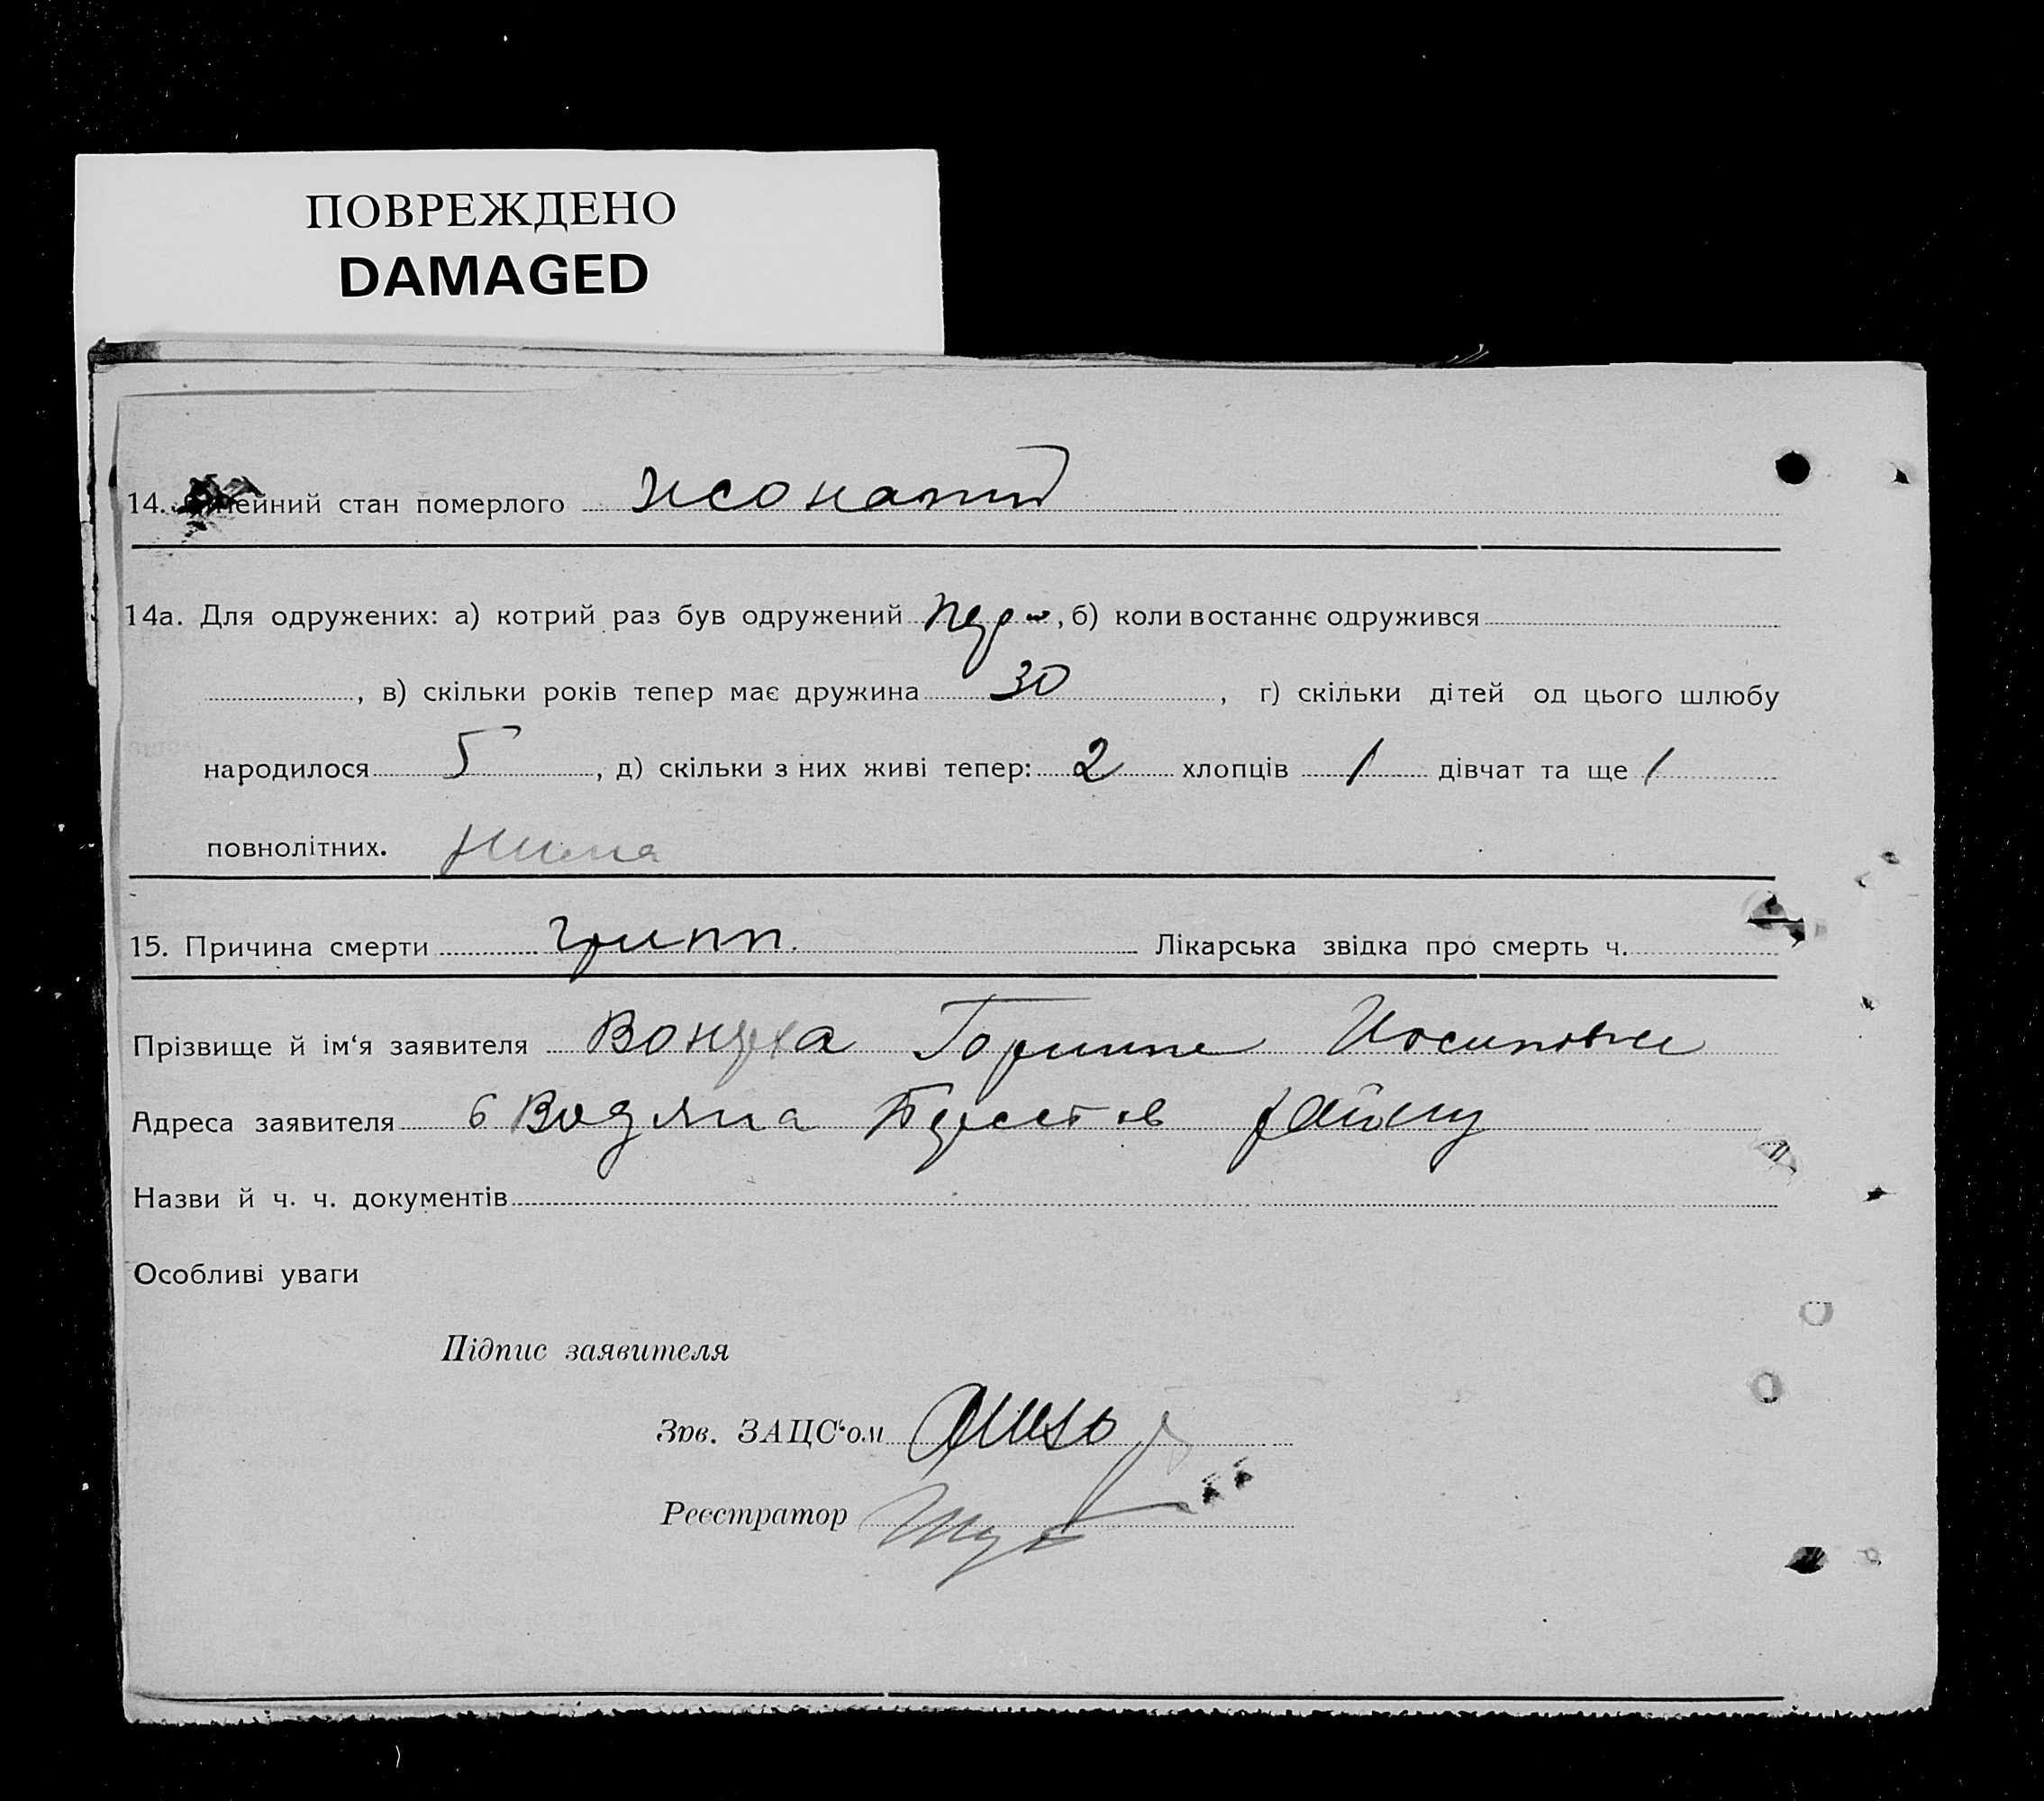 ПОВРЕЖДЕНО
DAMAGED
14. ейний стан померлого жонатий
14а. Для одружених: а) котрий раз був одружений перш, б) коли востаннє одружився
, в) скільки років тепер має дружина 30, г) скільки дітей од цього шлюбу
народилося 5, д) скільки з них живі тепер: 2 хлопців 1 дівчат та ще /
повнолітних.
15. Причина смерти грипп. Лікарська звідка про смерть ч.
Прізвище й ім‘я заявителя Йосиповна
Адреса заявителя Водяна району
Назви й ч. ч. документів
Особливі уваги
Підпис заявителя
Зав. ЗАЦС‘ом
Реєстратор